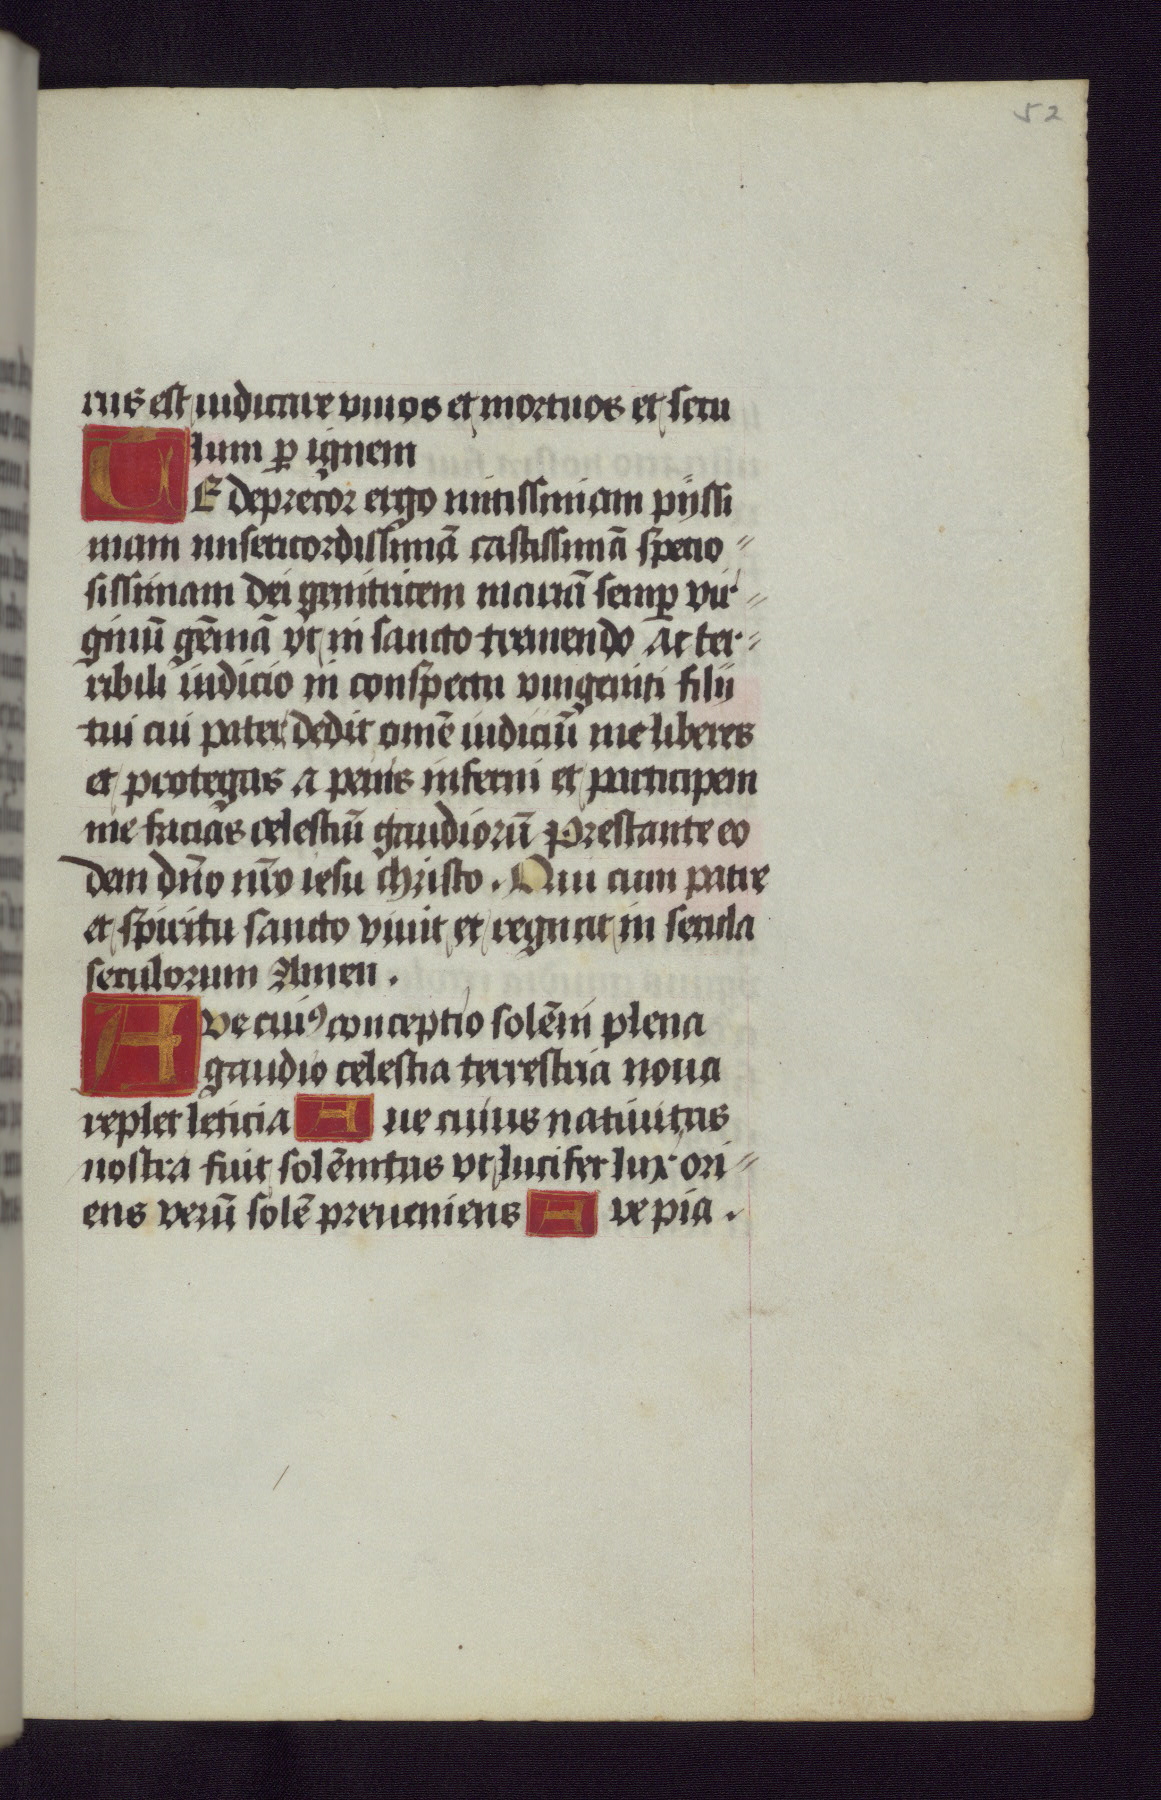 52
rus est iudicare viuos et mortuos et secu
lum ꝑ ignem
TE deprecor ergo mitissimam pijssi
mam misericordissimā castissimā specio
sissimam dei genitricem mariā semꝑ vir
ginū gēmā vt in sancto tremendo Ac ter
ribili iudicio in conspectu vnigeniti filij
tui cui pater dedit omē iudiciū me liberes
et protegas a penis inferni et participem
me facias celestiū gaudiorū Prestante eo
dem dn̄o nr̄o iesu christo. Qui cum patre
et spiritu sancto viuit et regnat in secula
seculorum Amen.
Ave cuiꝰ conceptio solēni plena
gaudio celestia terrestria noua
replet leticia Aue cuius natiuitas
nostra fuit solēnitas vt lucifer lux ori
ens verū solē preueniens Ave pia.